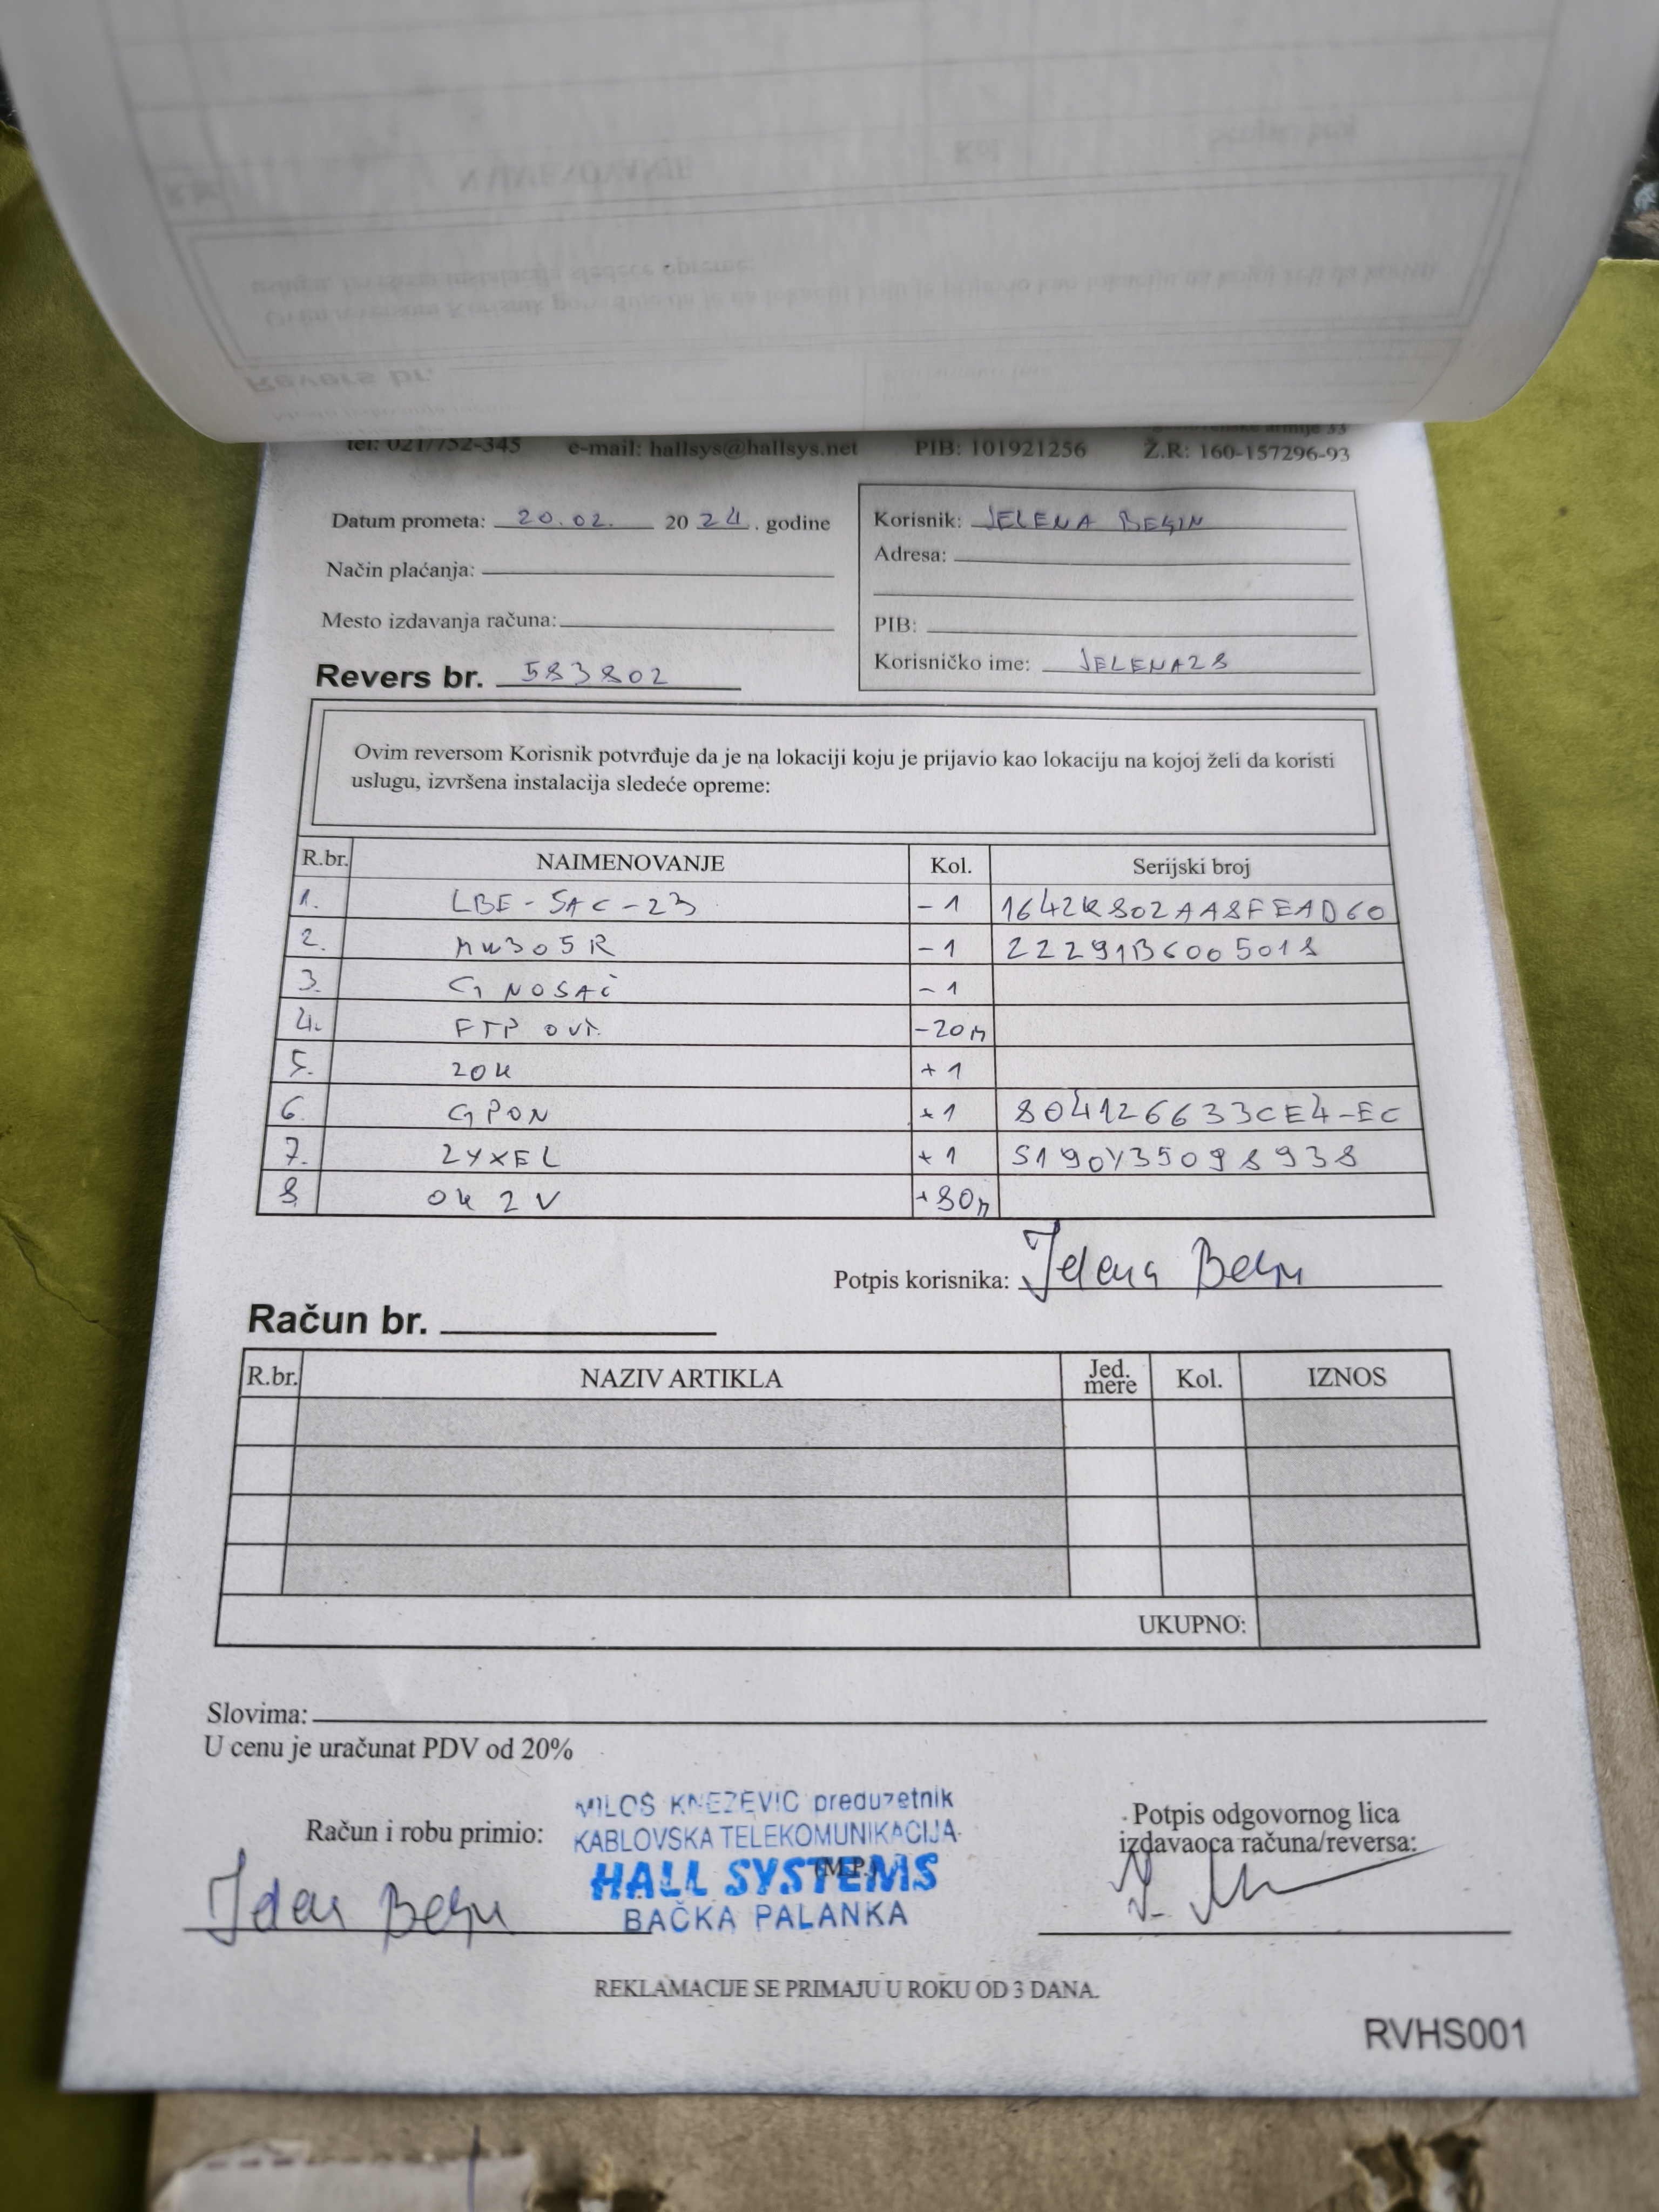 tel: 021/752-345 e-mail: hallsys@hallsys.net PIB: 101921256 Ž.R: 160-157296-93
Datum prometa: 20.02. 2024. godine
Korisnik: JELENA BEGIN
Adresa:
Način plaćanja:
Mesto izdavanja računa:
PIB:
Korisničko ime: JELENA28
Revers br. 583802
Ovim reversom Korisnik potvrđuje da je na lokaciji koju je prijavio kao lokaciju na kojoj želi da koristi
uslugu, izvršena instalacija sledeće opreme:
R.br. NAIMENOVANJE Kol. Serijski broj
1. LBE-5AC-23 -1 1642K802AA8FEAD60
2. MW305R -1 22291B6005018
3. G NOSAČ -1
4. FTP -20m
5. ZOK +1
6. GPON +1 804126633CE4-EC
7. ZYXEL +1 S190Y35098938
8 OK 2V +80m
Potpis korisnika: Jelena Begin
Račun br.
R.br. NAZIV ARTIKLA Jed. mere Kol. IZNOS
UKUPNO:
Slovima:
U cenu je uračunat PDV od 20%
MILOŠ KNEŽEVIĆ preduzetnik
KABLOVSKA TELEKOMUNIKACIJA
HALL SYSTEMS
BAČKA PALANKA
Račun i robu primio:
(M.P.)
Potpis odgovornog lica
izdavaoca računa/reversa:
REKLAMACIJE SE PRIMAJU U ROKU OD 3 DANA.
RVHS001